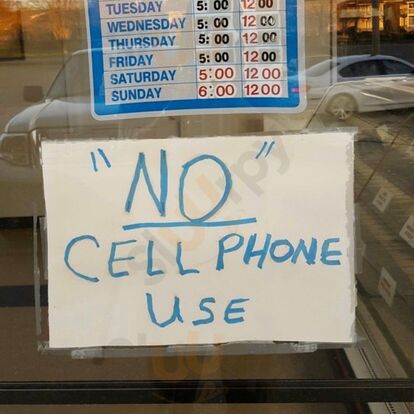 TUESDAY 5:00 12:00
WEDNESDAY 5:00 12:00
THURSDAY 5:00 12:00
FRIDAY 5:00 12:00
SATURDAY 5:00 12:00
SUNDAY 6:00 12:00
"NO"
CELL PHONE
USE